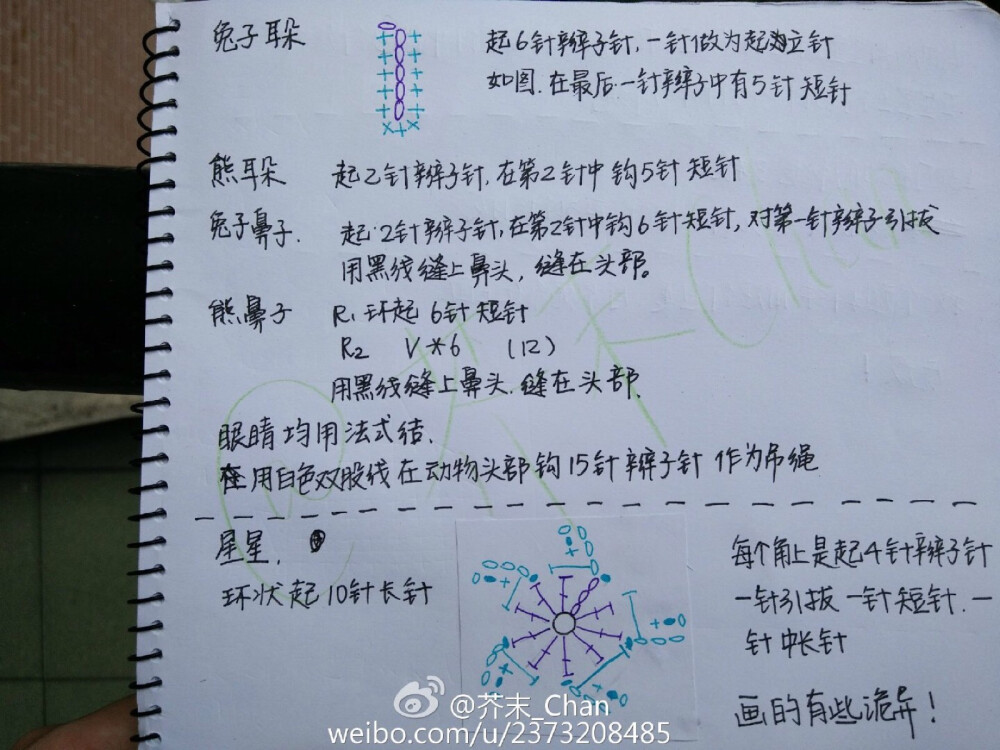 兔子耳朵
起6针辫子针,一针做为起立针
如图.在最后一针辫子中有5针短针
熊耳朵 起2针辫子针,在第2针中钩5针短针
兔子鼻子. 起2针辫子针,在第2针中钩6针短针,对第一针辫子引拔
用黑线缝上鼻头,缝在头部。
熊鼻子 R1 环起6针短针
R2 V*6 (12)
用黑线缝上鼻头.缝在头部.
眼睛均用法式结.
用白色双股线在动物头部钩15针辫子针 作为吊绳
星星.
环状起10针长针
每个角上是起4针辫子针
一针引拔 一针短针.一
针中长针
画的有些诡异!
@芥末_Chan
@芥末_Chan
weibo.com/u/2373208485